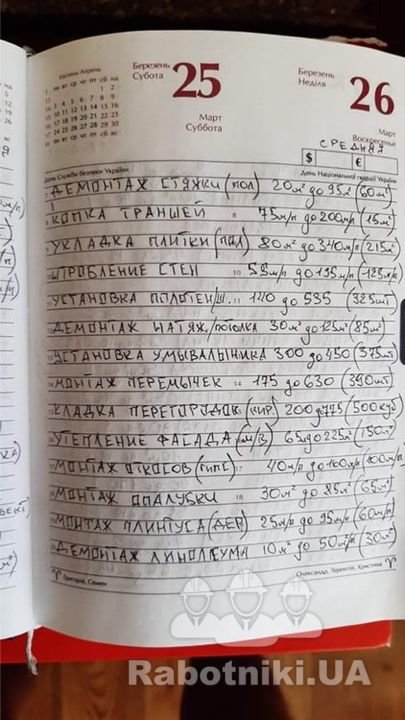 Квітень Апрель
Березень
Субота
25
Март
Суббота
Березень
Неділя
26
Март
Воскресенье
СРЕДНЯЯ
$ €
День Служби безпеки України
День Національної гвардії України
ДЕМОНТАЖ СТЯЖКИ (ПОЛ) 20м² до 95м² (60м²)
КОПКА ТРАНШЕЙ 8 75м/п до 200м/п (15м²)
УКЛАДКА ПЛИТКИ (ПОЛ) 80м² до 340м/п (215м²)
ШТРОБЛЕНИЕ СТЕН 10 55м/р до 135м/р (125м/р)
УСТАНОВКА ПОЛОТЕН/Ш. 11 120 до 535 (325шт)
ДЕМОНТАЖ НАТЯЖ/ПОТОЛКА 30м² до 125м² (85м²)
УСТАНОВКА УМЫВАЛЬНИКА 300 до 450 (375шт)
МОНТАЖ ПЕРЕМЫЧЕК 14 175 до 630 (390шт)
КЛАДКА ПЕРЕГОРОДОК (КИР) 200 до 775 (500куб)
УТЕПЛЕНИЕ ФАСАДА (М/В) 65 до 225м² (150м²)
МОНТАЖ ОТКОСОВ (ГИПС) 17 40м/п до 160м/п (100м/п)
МОНТАЖ ОПАЛУБКИ 18 30м² до 85м² (65м²)
МОНТАЖ ПЛИНТУСА (ДЕР) 25м/р до 95м/р (60м/р)
ДЕМОНТАЖ ЛИНОЛЕУМА 10м² до 50м² (30м²)
Григорій, Семен
Олександр, Терентій, Христина
Rabotniki.UA